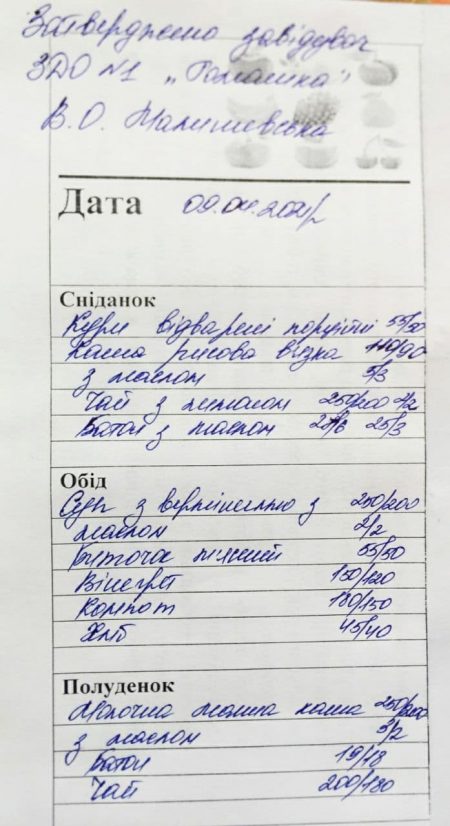 Затверджено завідувач
ЗДО №1 „Ромашка"
В.О. Малишевська
Дата 09.04.2021р
Сніданок
Кури відварені порційні 55/50
Каша рисова в'язка 110/90
з маслом 5/3
Чай з лимоном 250/200 2/2
Батон з маслом 25/3
Обід
Суп з вермішеллю з 250/200
маслом 2/2
Биточок 55/50
Вінегрет 150/120
Компот 180/150
Хліб 45/40
Полуденок
Молочна манна каша 250/200
з маслом 3/2
Батон 19/18
Чай 200/180